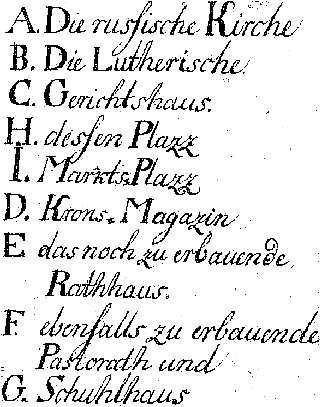 A. Die russische Kirche
B. Die Lutherische.
C. Gerichtshaus.
H. dessen Plazz
I. Markts=Plazz
D. Krons=Magazin
E das noch zu erbauende
Rathhaus.
F. ebenfalls zu erbauende
Pastorath und
G. Schuhlhaus